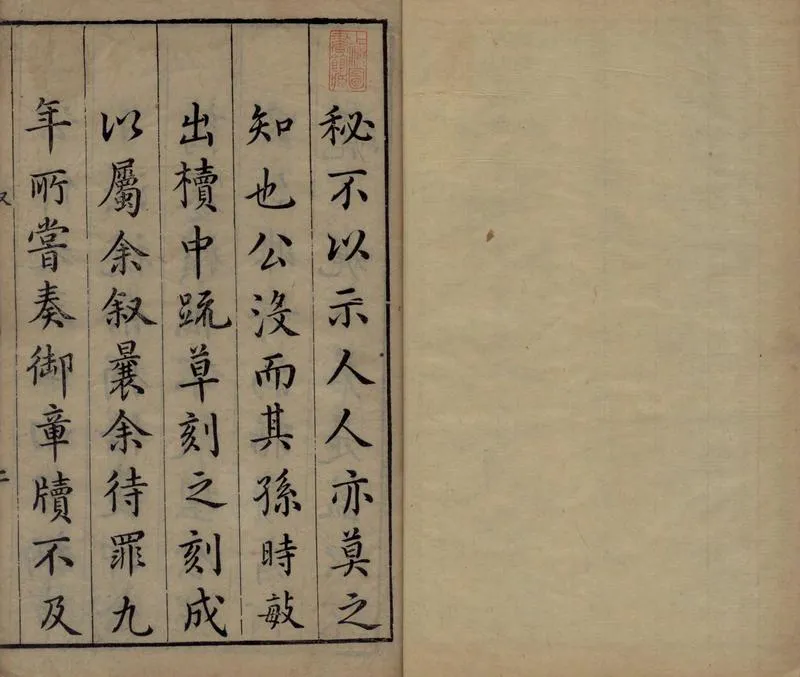 秘不以示人人亦莫之
知也公沒而其孫時敏
出櫝中疏草刻之刻成
以屬余叙曩余待罪九
年所嘗奏御章牘不及